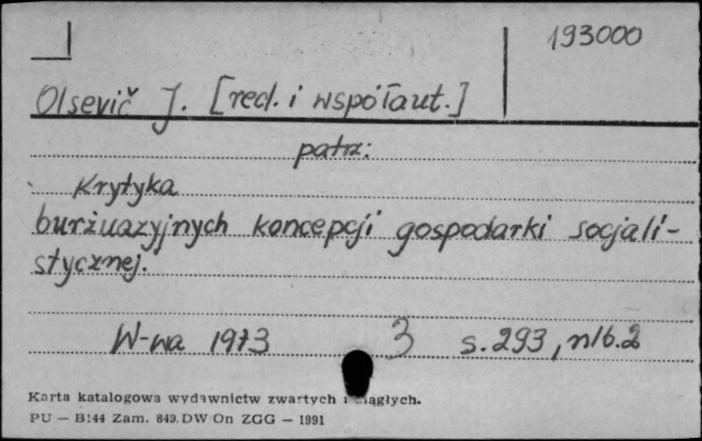 193000
Olsevič J. [red. i współaut.]
patrz:
Krytyka
burżuazyjnych koncepcji gospodarki socjali-
stycznej.
W-wa 1973 3 s. 293, nlb. 2
Karta katalogowa wydawnictw zwartych i ciągłych.
PU — B144 Zam. 849. DW On ZGG — 1991